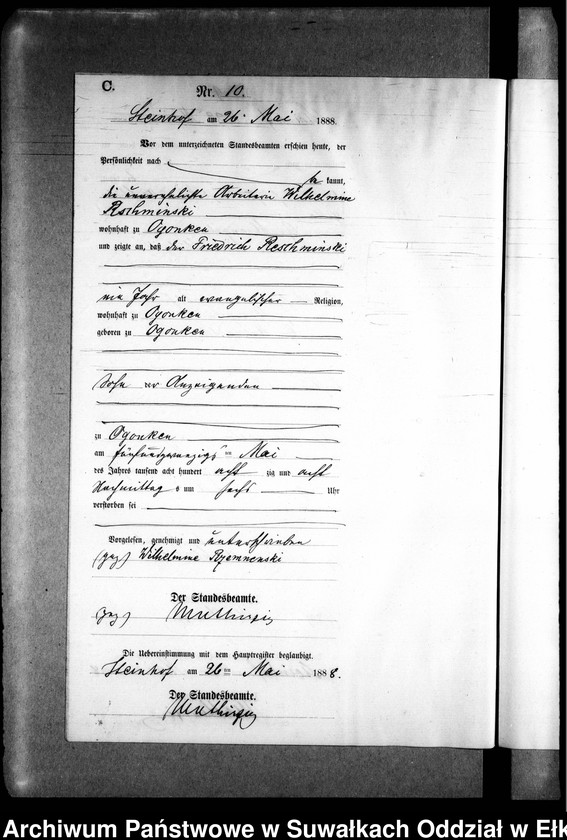 C.
Nr. 10.
Steinhof am 26. Mai 1888.
Vor dem unterzeichneten Standesbeamten erschien heute, der
Persönlichkeit nach
be kannt,
die unverehelichte Arbeiterin Wilhelmine
Rschminski
wohnhaft zu Ogonken
und zeigte an, daß der Friedrich Reschminski
ein Jahr alt evangelischer Religion,
wohnhaft zu Ogonken
geboren zu Ogonken
Sohn der Anzeigenden
zu Ogonken
am fünfundzwanzigsten Mai
des Jahres tausend acht hundert acht zig und acht
Nachmittag s um sechs Uhr
verstorben sei
Vorgelesen, genehmigt und unterschrieben
(gez) Wilhelmine
Der Standesbeamte.
(gez)
Die Uebereinstimmung mit dem Hauptregister beglaubigt.
Steinhof am 26ten Mai 1888.
Der Standesbeamte.
Archiwum Państwowe w Suwałkach Oddział w Ełk